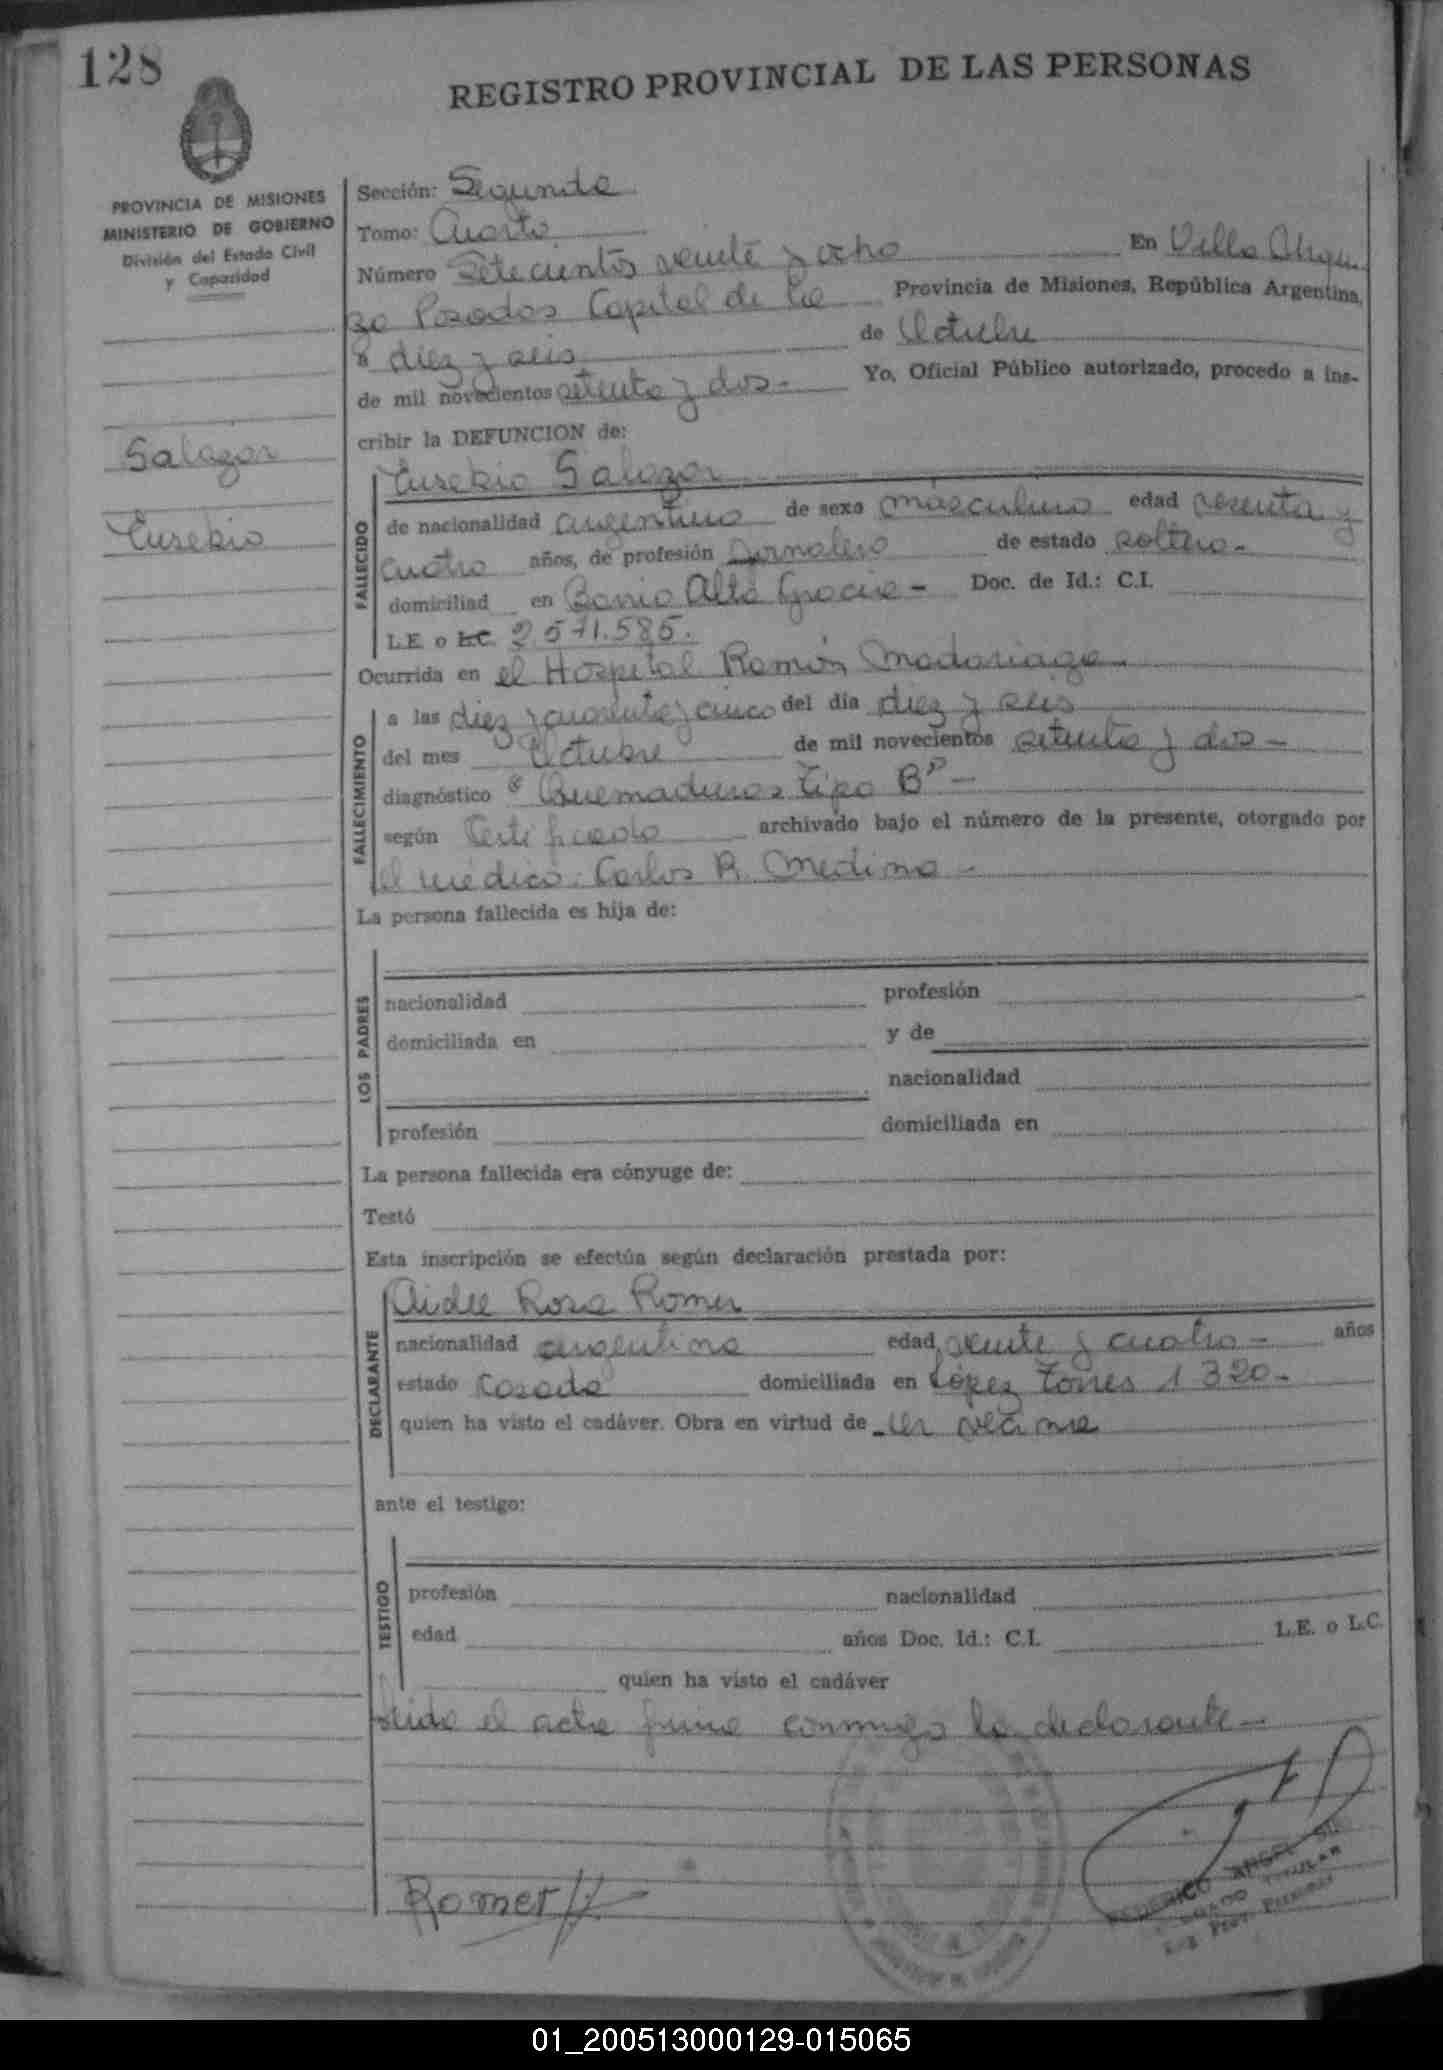 128
REGISTRO PROVINCIAL DE LAS PERSONAS
PROVINCIA DE MISIONES
MINISTERIO DE GOBIERNO
División del Estado Civil
y Capacidad
Salazar
Eusebio
Sección: Segunda
Tomo: Cuarto
Número Setecientos veinte y ocho En Villa Urqui
za Posadas Capital de la Provincia de Misiones, República Argentina,
a diez y seis de Octubre
de mil novecientos setenta y dos - Yo, Oficial Público autorizado, procedo a ins-
cribir la DEFUNCION de:
FALLECIDO
Eusebio Salazar
de nacionalidad argentino de sexo masculino edad sesenta y
cuatro años, de profesión Jornalero de estado soltero -
domiciliad en Barrio Alta Gracia - Doc. de Id.: C.I.
L.E. o L.C. 2.571.585.
Ocurrida en el Hospital Ramón Madariaga -
FALLECIMIENTO
a las diez y cuarenta y cinco del día diez y seis
del mes Octubre de mil novecientos setenta y dos -
diagnóstico Quemaduras tipo B" -
según Certificado archivado bajo el número de la presente, otorgado por
el médico: Carlos R. Medina -
La persona fallecida es hija de:
LOS PADRES
nacionalidad profesión
domiciliada en y de
nacionalidad
profesión domiciliada en
La persona fallecida era cónyuge de:
Testó
Esta inscripción se efectúa según declaración prestada por:
DECLARANTE
Aidee Rosa Romer
nacionalidad argentina edad veinte y cuatro - años
estado Casada domiciliada en López Torres 1320 -
quien ha visto el cadáver. Obra en virtud de ser vecina
ante el testigo:
TESTIGO
profesión nacionalidad
edad años Doc. Id.: C.I. L.E. o L.C.
quien ha visto el cadáver
Leída el acta firma conmigo la declarante -
Romer
FEDERICO ANGEL
TITULAR
01_200513000129-015065